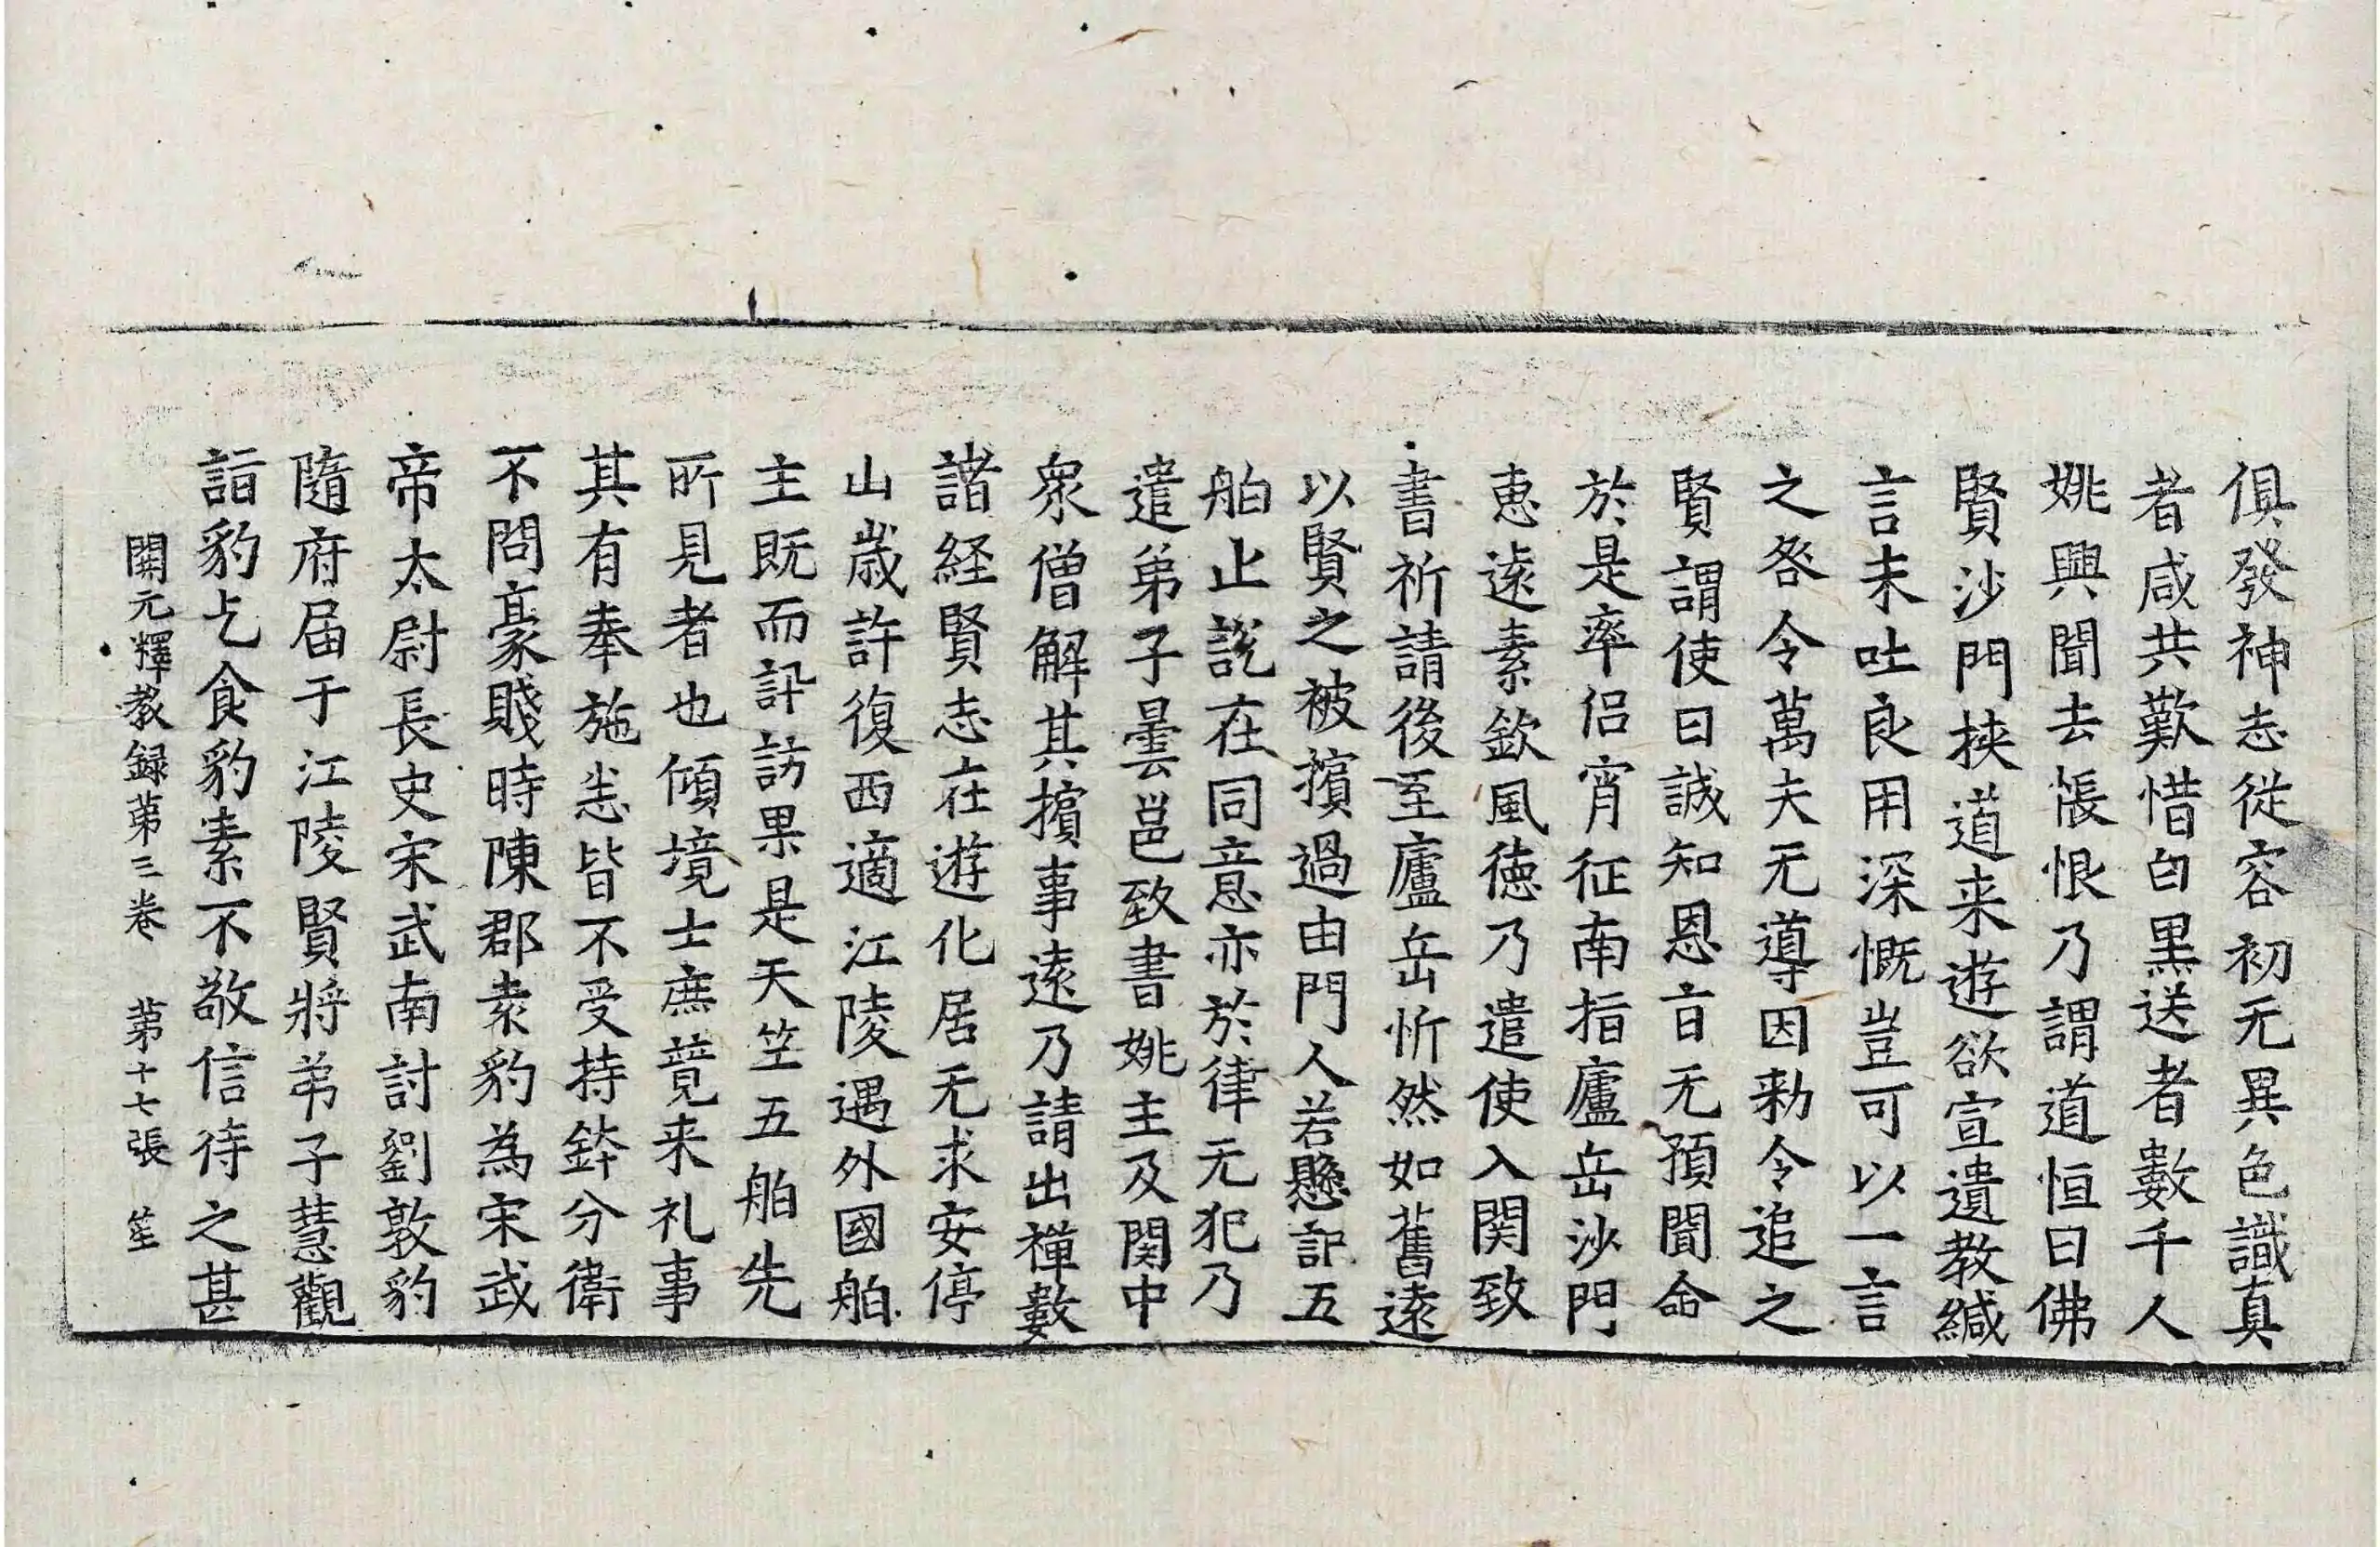 俱發神志從容初无異色識真
者咸共歎惜白黒送者數千人
姚興聞去悵恨乃謂道恒曰佛
賢沙門挾道来遊欲宣遺教緘
言未吐良用深慨豈可以一言
之咎令萬夫无導因勑令追之
賢謂使曰誠知恩旨无預聞命
於是率侶宵征南指廬岳沙門
恵逺素欽風徳乃遣使入関致
書祈請後至廬岳忻然如舊逺
以賢之被擯過由門人若懸記五
舶止説在同意亦於律无犯乃
遣弟子曇邕致書姚主及関中
衆僧解其擯事逺乃請出禪數
諸経賢志在遊化居无求安停
山歳許復西適江陵遇外國舶
主既而訊訪果是天竺五舶先
所見者也傾境士庶競来礼事
其有奉施悉皆不受持鉢分衛
不問豪賤時陳郡袁豹為宋武
帝太尉長史宋武南討劉敦豹
隨府届于江陵賢將弟子慧觀
詣豹乞食豹素不敬信待之甚
開元釋教録第三卷 第十七張 笙